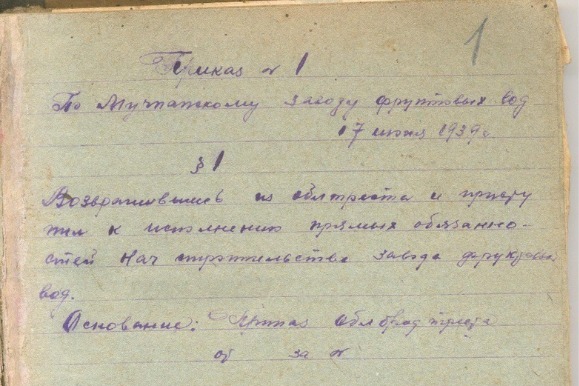 1
Приказ № 1
По Мучпатскому заводу фруктовых вод
17 июня 1939г.
§ 1
Возвратившись из облтреста и присту
пил к исполнению прямых обязанно-
стей Нач строительства завода фруктовых
вод.
Основание: Приказ Облво треста
от за №